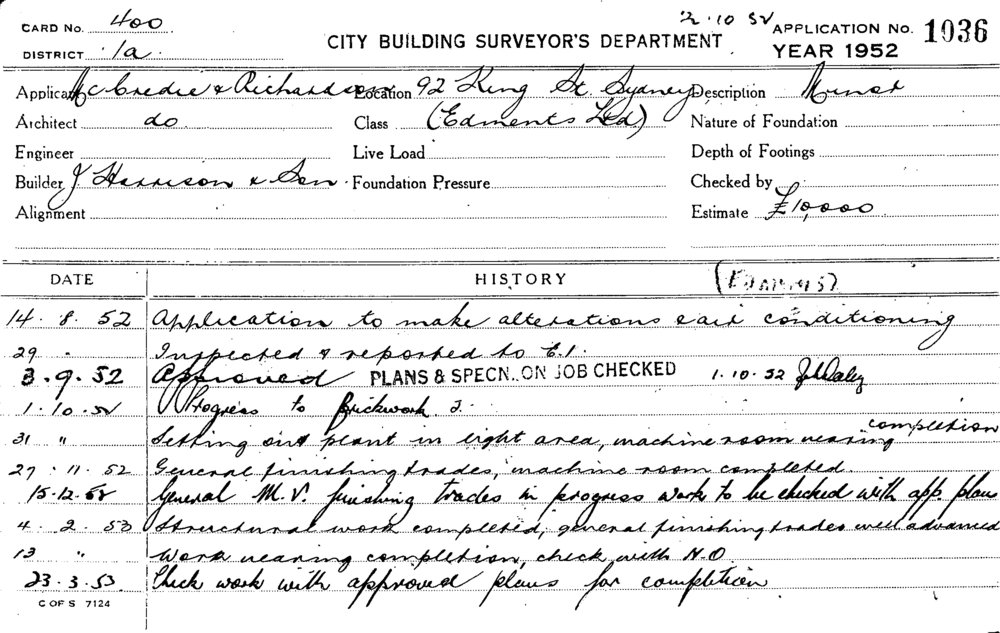 CARD No. 400
2.10.52
APPLICATION No. 1036
DISTRICT 1a
CITY BUILDING SURVEYOR'S DEPARTMENT
YEAR 1952
Applicant McCredie & Richardson Location 92 King St. Sydney Description Minor
Architect do Class (Edments Ltd) Nature of Foundation
Engineer Live Load Depth of Footings
Builder J Harrison & Son Foundation Pressure Checked by
Alignment Estimate £10,000
DATE HISTORY
14.8.52 Application to make alterations & air conditioning
29 " Inspected & reported to E.I.
3.9.52 Approved PLANS & SPECN. ON JOB CHECKED 1.10.52
1.10.52 Progress to Brickwork
31 " Setting out plant in light area, machine room nearing completion
27.11.52 General finishing trades, machine room completed.
15.12.52 General M.V. finishing trades in progress work to be checked with app. plan
4.2.53 Structural work completed, general finishing trades well advanced
13 " Work nearing completion, check with N.O.
23.3.53 Check work with approved plans for completion
C OF S 7124